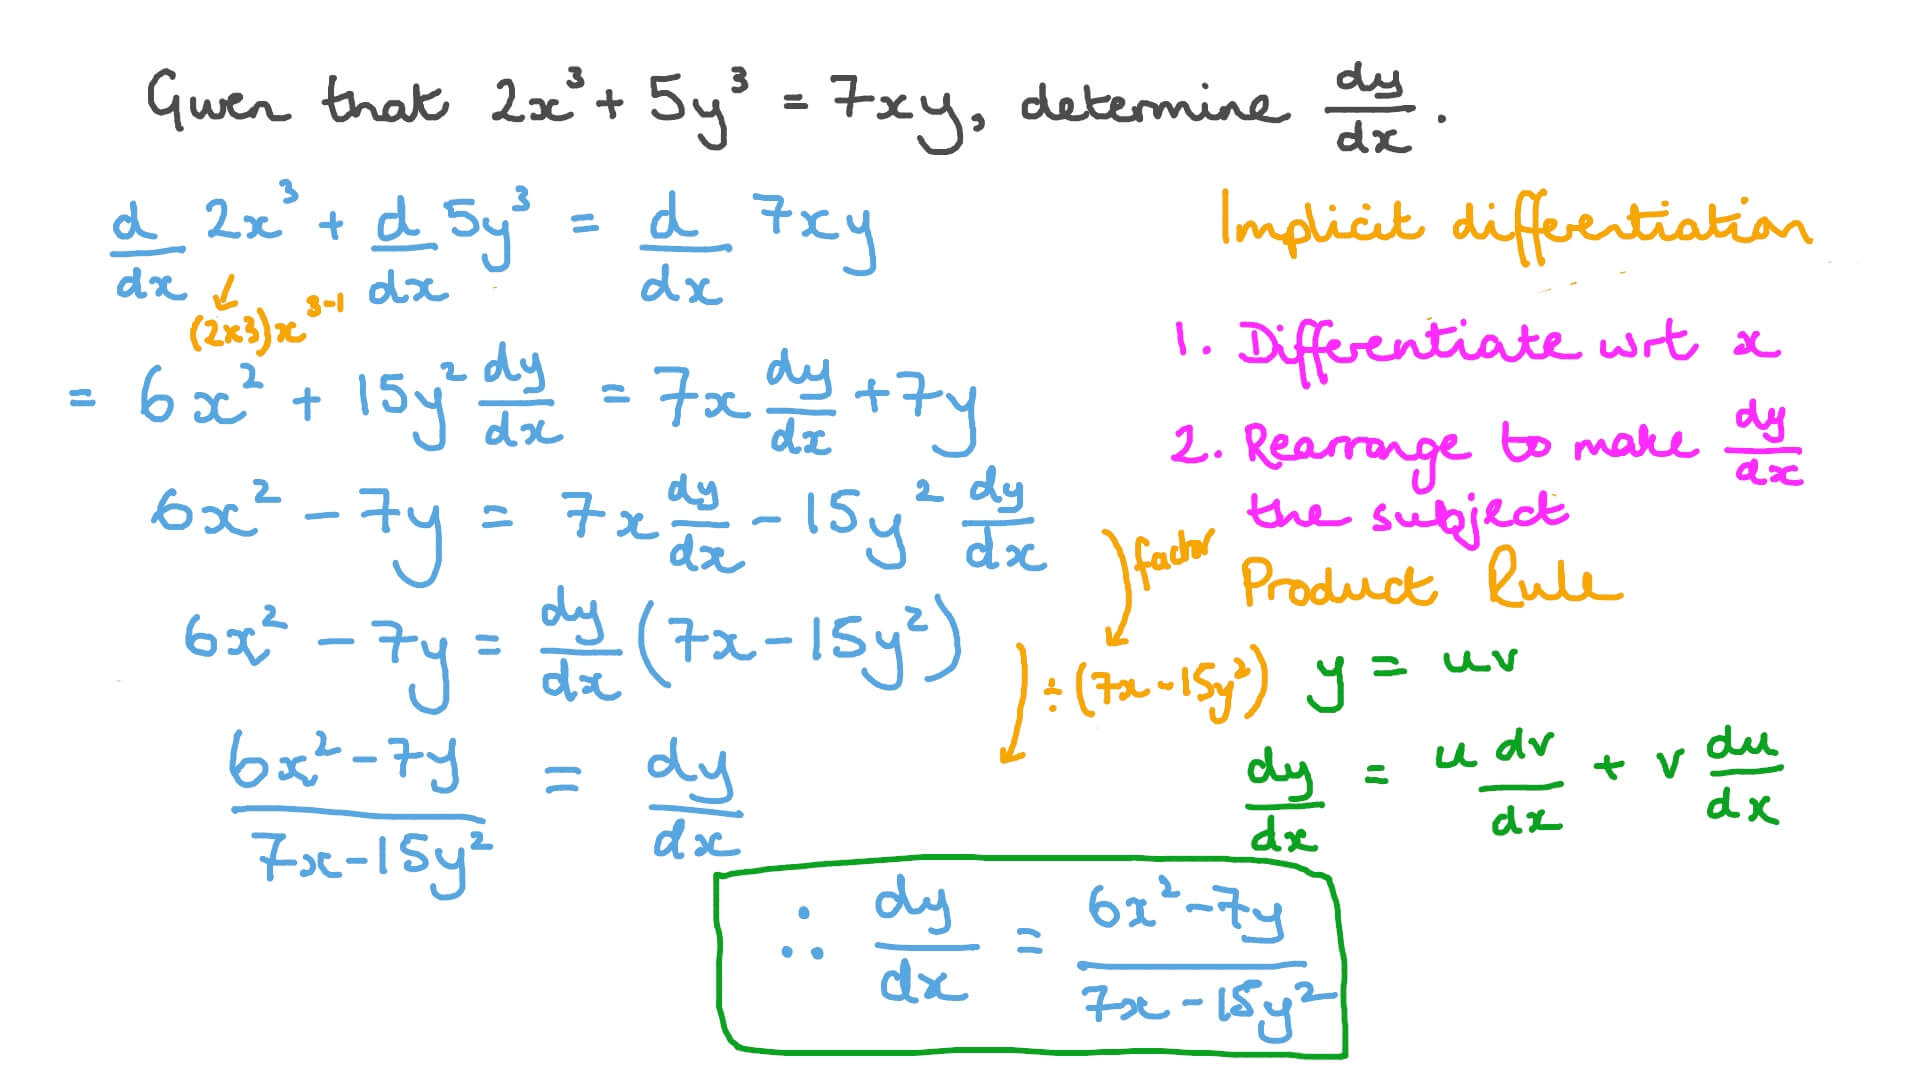 Given that 2x³ + 5y³ = 7xy, determine dy/dx.
d/dx 2x³ + d/dx 5y³ = d/dx 7xy
(2×3)x³⁻¹
= 6x² + 15y² dy/dx = 7x dy/dx + 7y
6x² - 7y = 7x dy/dx - 15y² dy/dx
factor
6x² - 7y = dy/dx (7x - 15y²)
÷ (7x - 15y²)
(6x² - 7y)/(7x - 15y²) = dy/dx
∴ dy/dx = (6x² - 7y)/(7x - 15y²)
Implicit differentiation
1. Differentiate wrt x
2. Rearrange to make dy/dx
the subject
Product Rule
y = uv
dy/dx = u dv/dx + v du/dx